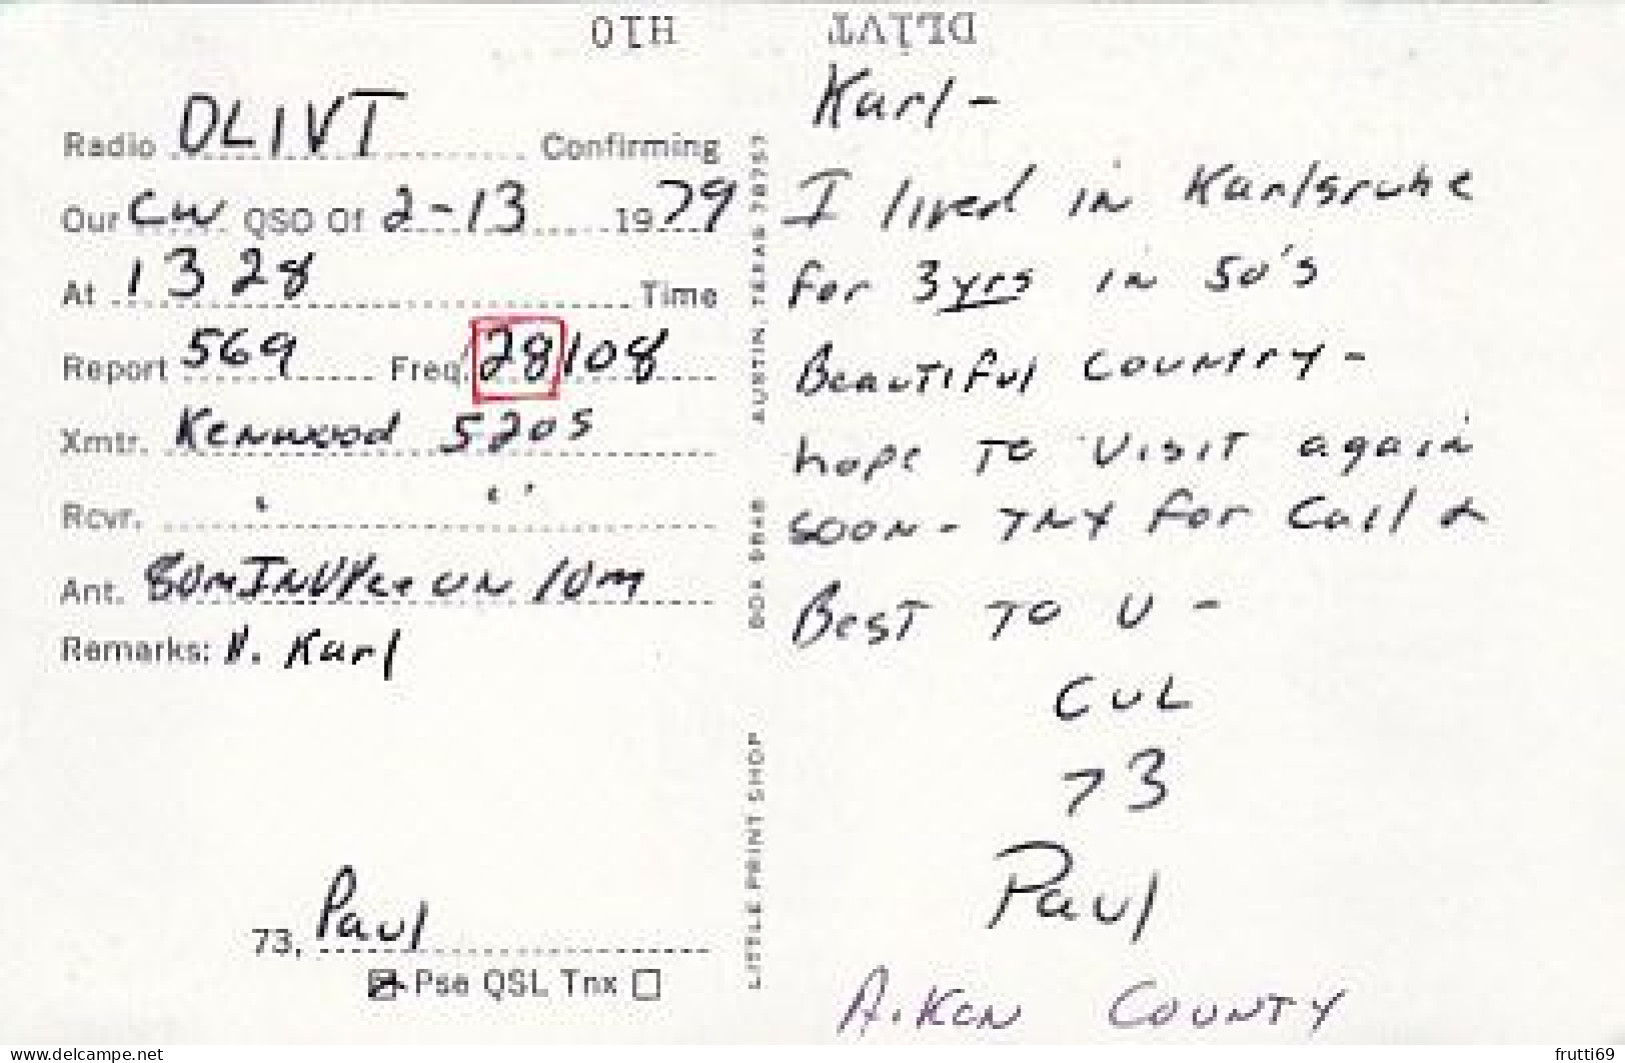 H10
DL1VT
Radio DL1VT Confirming
Our CW QSO Of 2-13 1979
At 1328 Time
Report 569 Freq. 28108
Xmtr. Kenwood 520S
Rcvr. " "
Ant. 80m INVVee ON 10m
Remarks: Karl
73, Paul
Pse QSL Tnx
LITTLE PRINT SHOP BOX 9848 AUSTIN, TEXAS 78757
Karl -
I lived in Karlsruhe
for 3 yrs in 50's
Beautiful country -
hope to visit again
soon - TNX for Call &
Best to U -
CUL
73
Paul
Aiken County
www.delcampe.net
frutti69